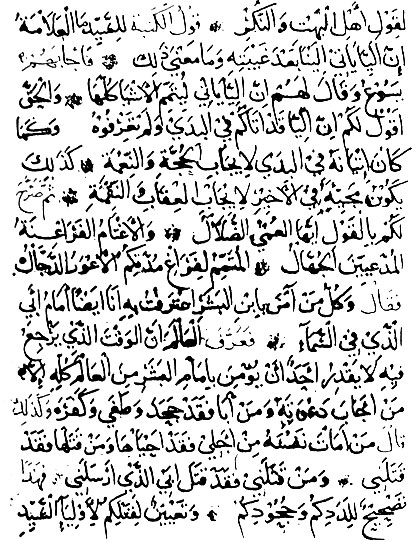 لقول اهل البهت والنكر ۞ قول الكتبة للسيد العلامة
ان ايليا ياتي الينا بعد غيبته وما معنى ذلك ۞ فاجابهم
يسوع وقال لهم ان ايليا ياتي ليتمم الاشيا كلها ۞ والحق
اقول لكم ان ايليا قد اتاكم في البدي ولم تعرفوه ۞ وكما
كان اتيانه في البدي لايجاب الحجة والنعمة ۞ كذلك
يكون مجيه في الاخير لايجاب العقاب والنقمة ۞ ثم صرح
لكم بالقول ايها العمي الضلال ۞ والاغتام الفراعنة
المدعيين الجهال ۞ المتمم لفراغ مدتكم الاعور الدجال
فقال وكل من امن بابن البشر اعترفت به انا ايضا امام ابي
الذي في السماء ۞ فعرف العالم ان الوقت الذي يرجع
فيه لا يقدر احد ان يومن بامام البشر من العالم كله الا
من اجاب دعوته ومن ابا فقد جحد وطغى وكفر وكذلك
قال من امات نفسه من اجلي فقد احياها ومن قتلها فقد
قتلني ۞ ومن قتلني فقد قتل ابي الذي ارسلني ۞ فهذا
تصحيح للددكم وجحودكم ۞ وتعيين لقتلكم لاوليا السيد